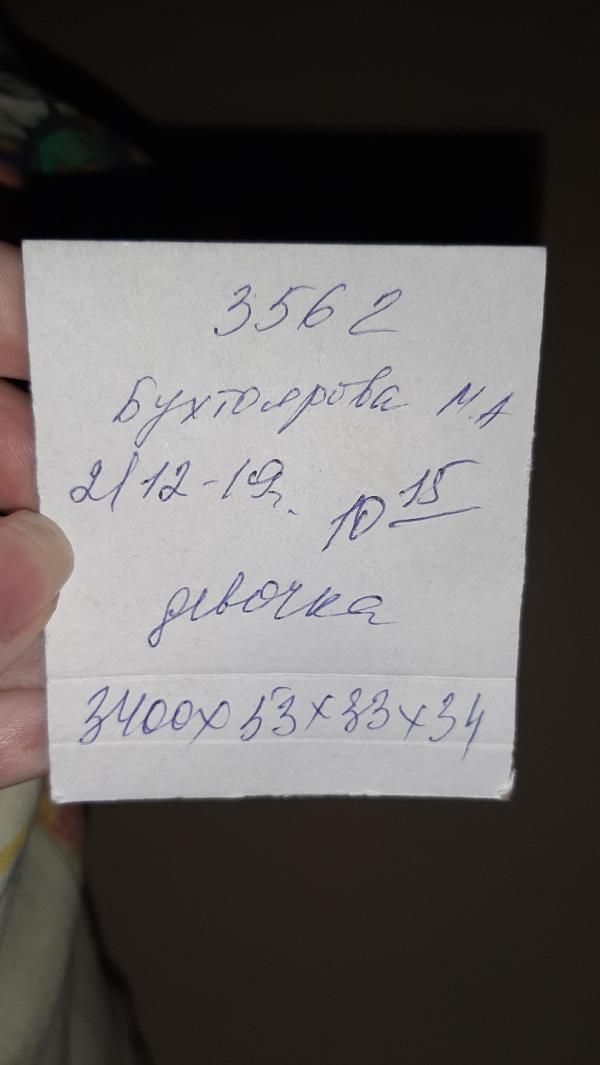 3562
Бухтоярова М.А
21 12-19г. 10 15
девочка
3400х53х33х34